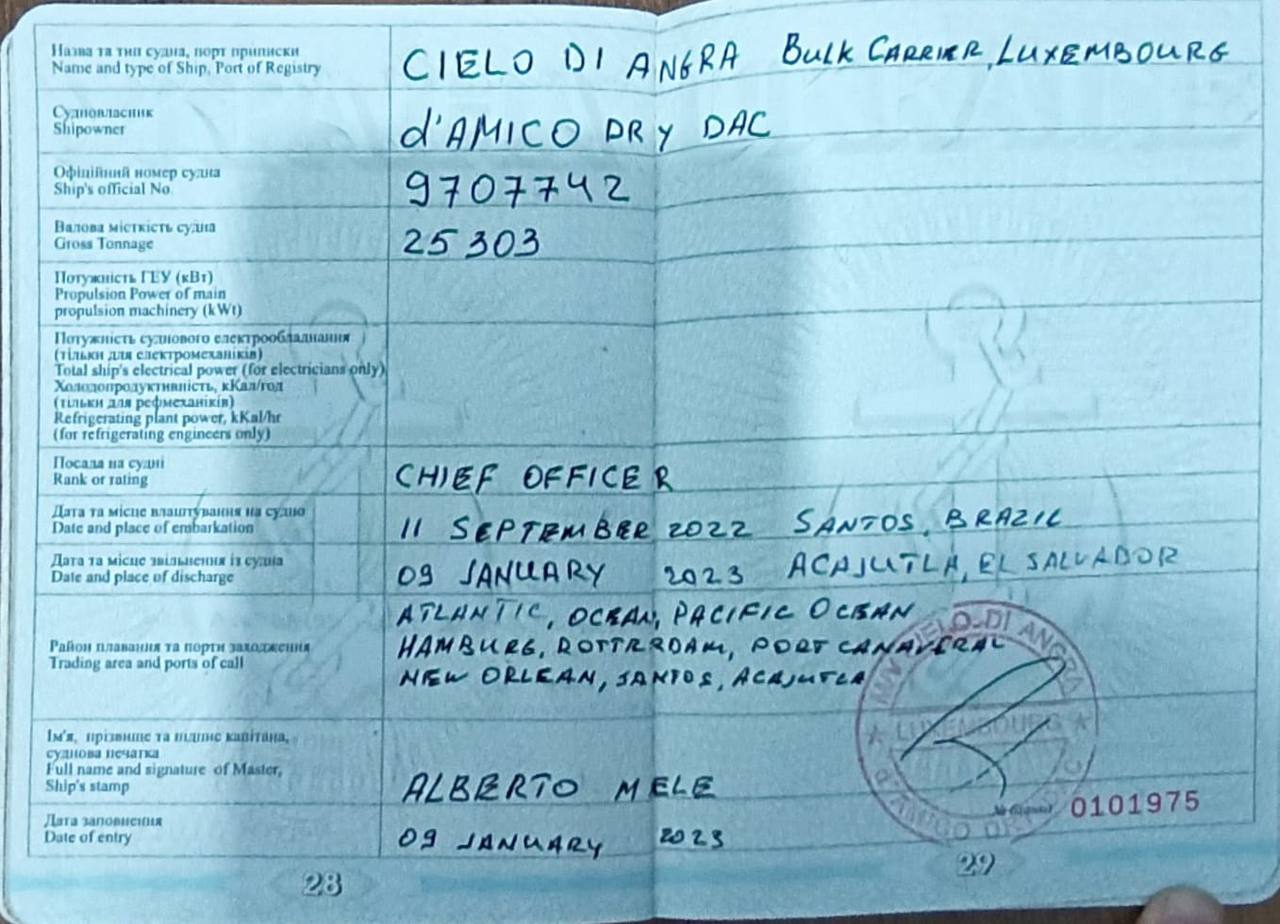 Назва та тип судна, порт приписки
Name and type of Ship, Port of Registry
CIELO DI ANGRA BULK CARRIER, LUXEMBOURG
Судновласник
Shipowner
d'AMICO DRY DAC
Офіційний номер судна
Ship's official No
9707742
Валова місткість судна
Gross Tonnage
25303
Потужність ГЕУ (кВт)
Propulsion Power of main
propulsion machinery (kWt)
Потужність суднового електрообладнання
(тільки для електромеханіків)
Total ship's electrical power (for electricians only)
Холодопродуктивність, кКал/год
(тільки для рефмеханіків)
Refrigerating plant power, kKal/hr
(for refrigerating engineers only)
Посада на судні
Rank or rating
CHIEF OFFICER
Дата та місце влаштування на судно
Date and place of embarkation
11 SEPTEMBER 2022 SANTOS, BRAZIL
Дата та місце звільнення із судна
Date and place of discharge
09 JANUARY 2023 ACAJUTLA, EL SALVADOR
Район плавання та порти заходження
Trading area and ports of call
ATLANTIC, OCEAN, PACIFIC OCEAN
HAMBURG, ROTTERDAM, PORT CANAVERAL
NEW ORLEAN, SANTOS, ACAJUTLA
M/V CIELO DI ANGRA
LUXEMBOURG
d'AMICO DRY
Ім'я, прізвище та підпис капітана,
суднова печатка
Full name and signature of Master,
Ship's stamp
ALBERTO MELE
0101975
Дата заповнення
Date of entry
09 JANUARY 2023
28
29